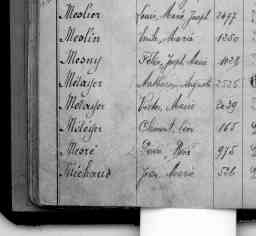 Meslier Louis, Marie, Joseph 2497
Meslin Emile, Marie 1250
Mesny Félix, Joseph, Marie 1028
Métayer Mathurin, Auguste 2525
Métayer Victor, Marie 2439
Météyer Clément, Léon 165
Meuré René 975
Michaud Jean, Marie 526